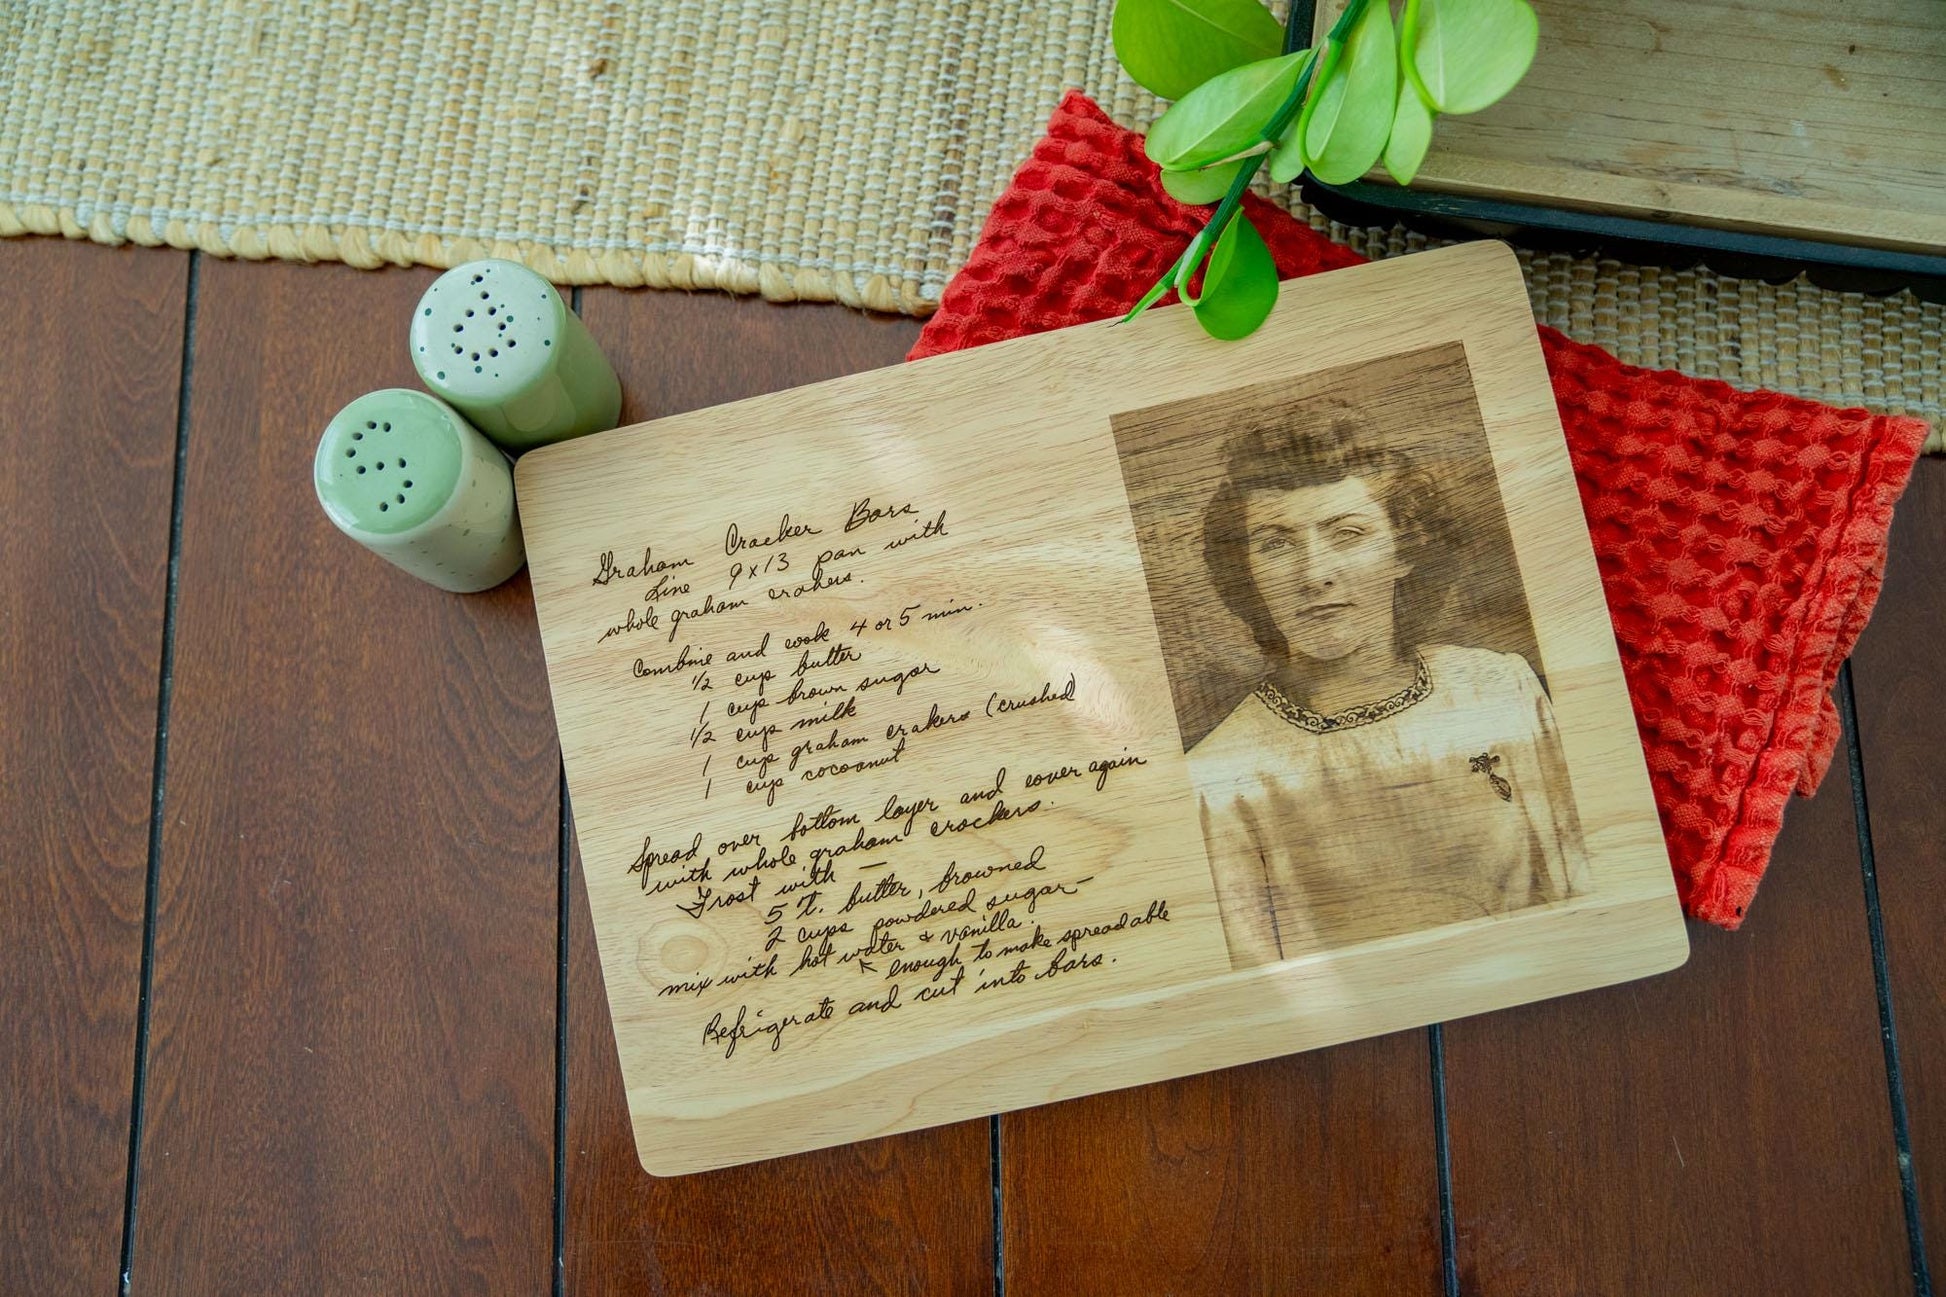 Graham Cracker Bars
Line 9x13 pan with
whole graham crakers.
Combine and cook 4 or 5 min.
1/2 cup butter
1 cup brown sugar
1/2 cup milk
1 cup graham crakers (crushed)
1 cup cocoanut
Spread over bottom layer and cover again
with whole graham crackers.
Frost with —
5 T. butter, browned
2 cups powdered sugar—
mix with hot water & vanilla.
↖ enough to make spreadable
Refrigerate and cut into bars.